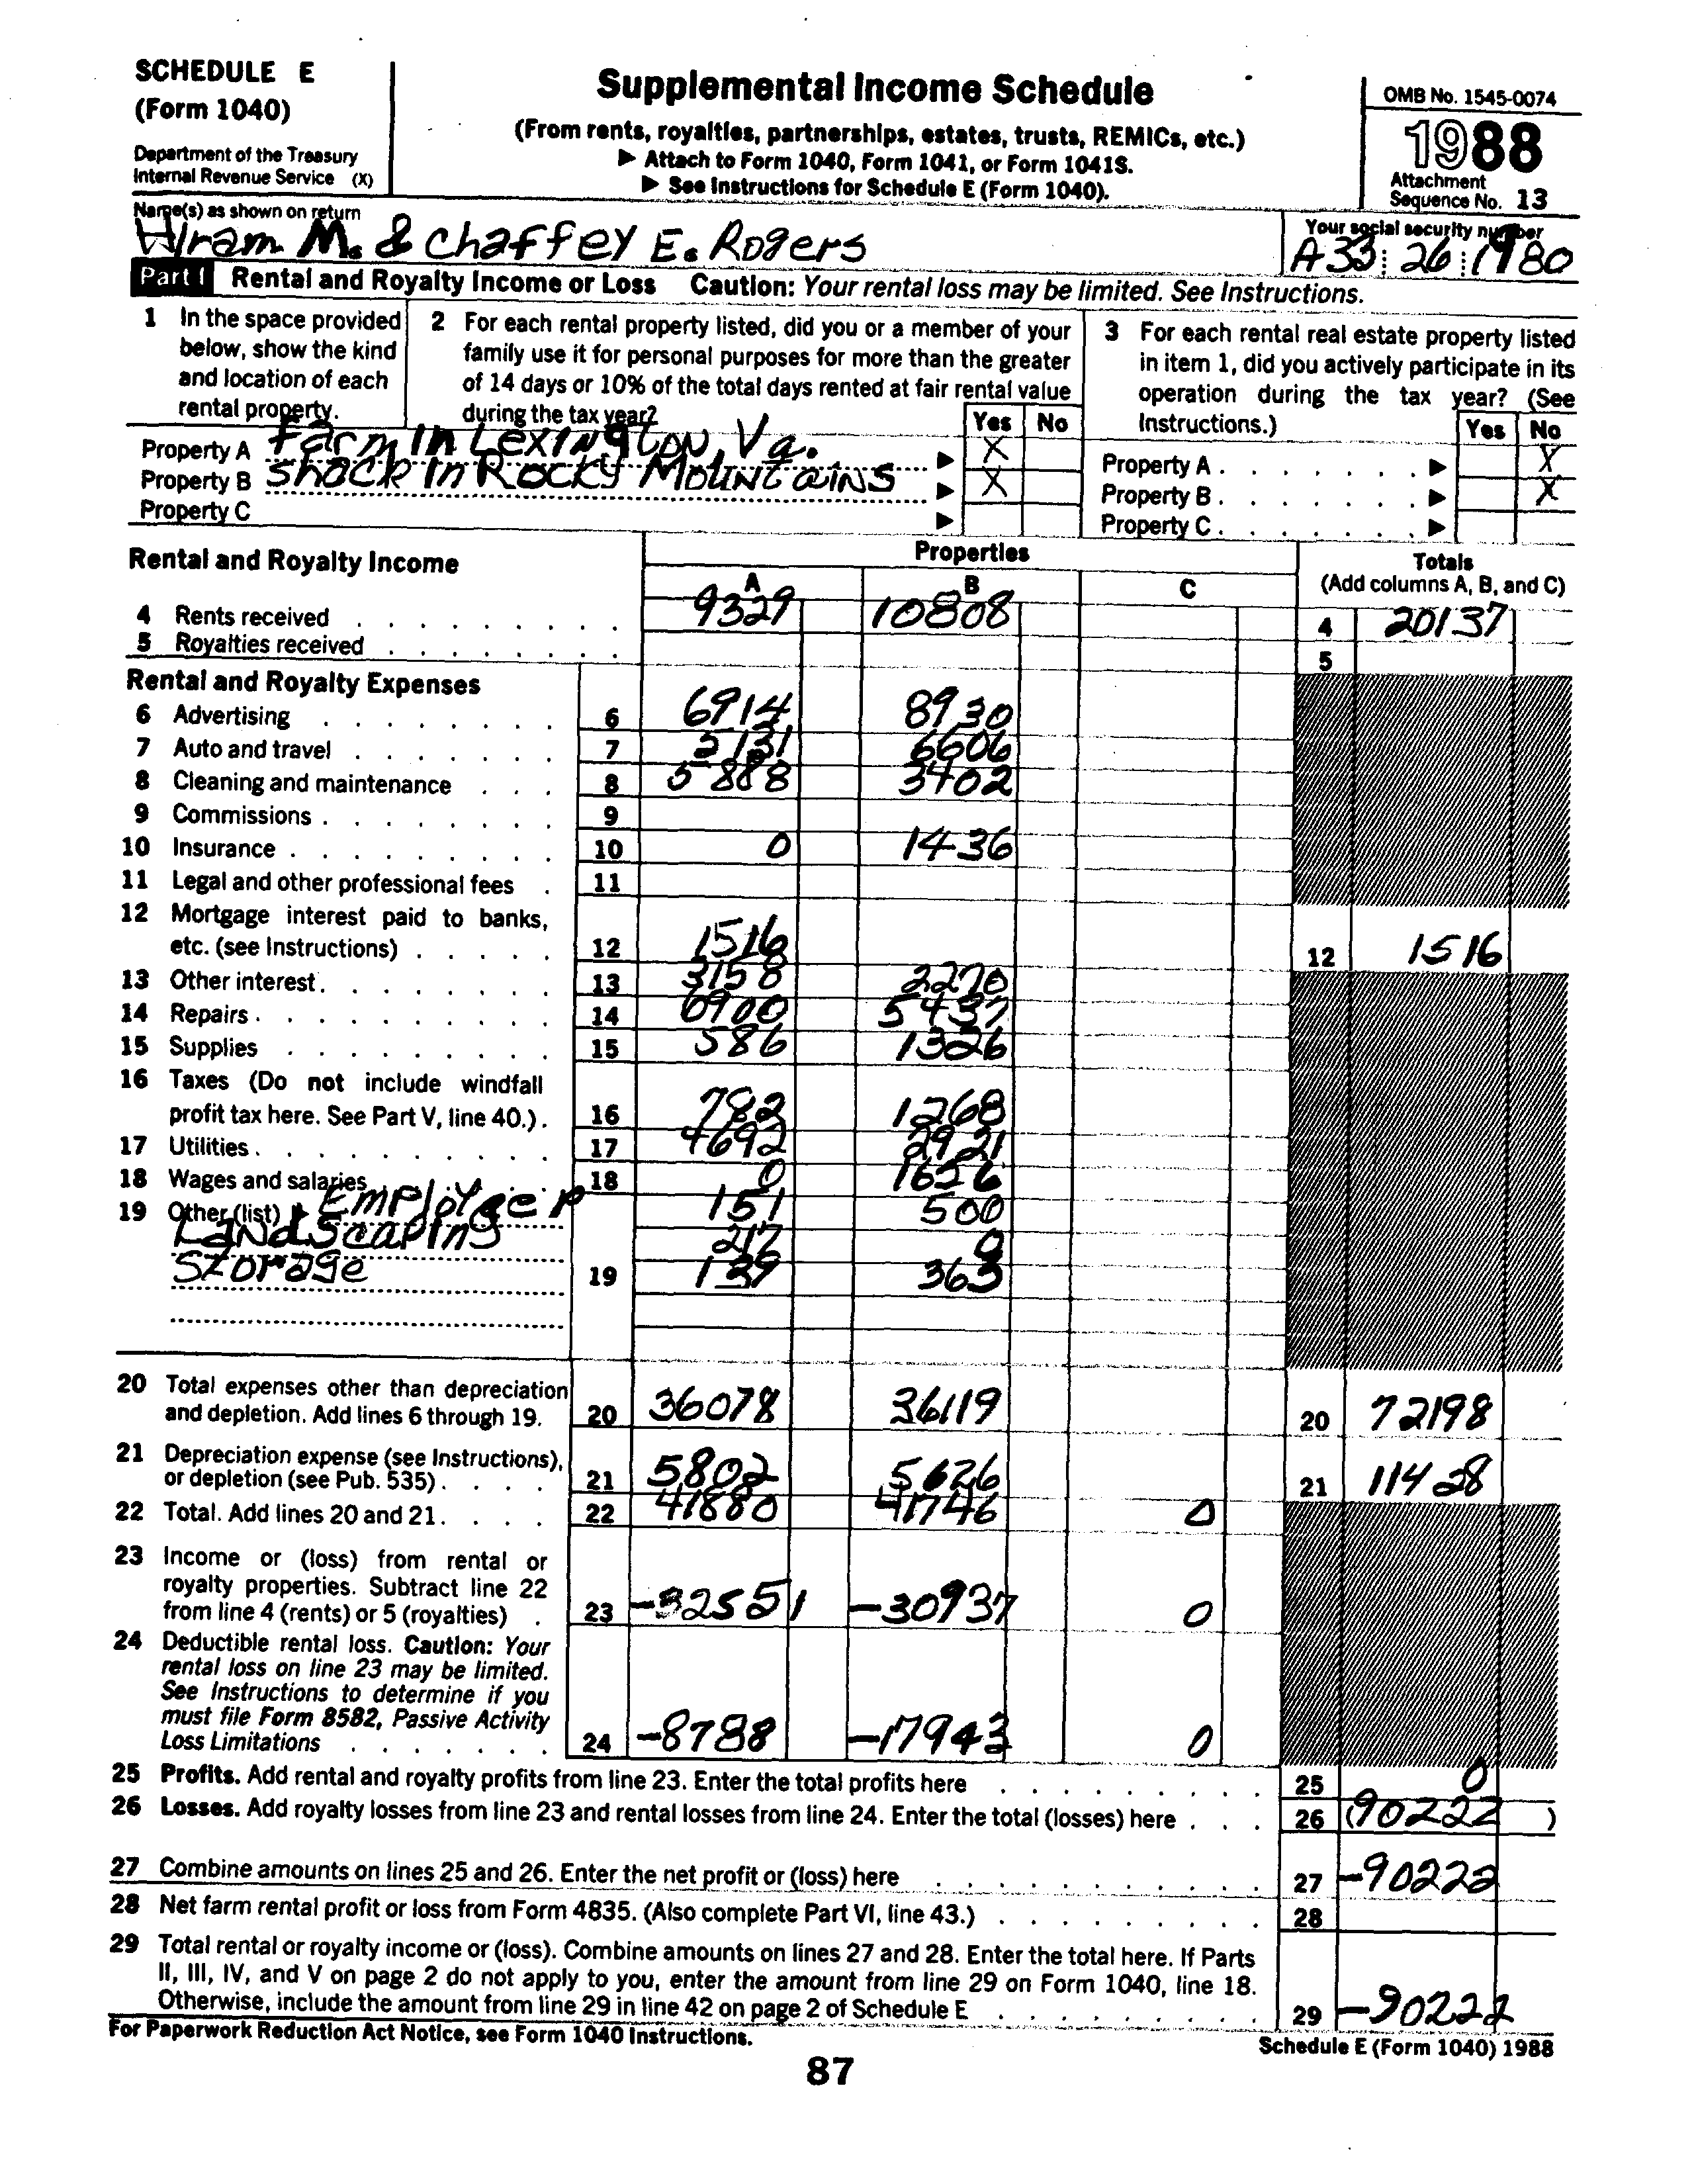 SCHEDULE E
(Form 1040)
Department of the Treasury
Internal Revenue Service (X)
Supplemental Income Schedule
(From rents, royalties, partnerships, estates, trusts, REMICs, etc.)
▶ Attach to Form 1040, Form 1041, or Form 1041S.
▶ See Instructions for Schedule E (Form 1040).
OMB No. 1545-0074
1988
Attachment
Sequence No. 13
Name(s) as shown on return
Hiram M. & Chaffey E. Rogers
Your social security number
A33 : 26 : 1980
Part I Rental and Royalty Income or Loss Caution: Your rental loss may be limited. See Instructions.
1 In the space provided
below, show the kind
and location of each
rental property.
2 For each rental property listed, did you or a member of your
family use it for personal purposes for more than the greater
of 14 days or 10% of the total days rented at fair rental value
during the tax year?
Yes No
3 For each rental real estate property listed
in item 1, did you actively participate in its
operation during the tax year? (See
Instructions.)
Yes No
Property A Farm In Lexington, Va. ▶ X
Property B Shack In Rocky Mountains ▶ X
Property C ▶
Property A . . . . . . . ▶ X
Property B . . . . . . . ▶ X
Property C . . . . . . . ▶
Rental and Royalty Income
Properties
A B C
Totals
(Add columns A, B, and C)
4 Rents received 9329 10808 4 20137
5 Royalties received 5
Rental and Royalty Expenses
6 Advertising 6 6914 8930
7 Auto and travel 7 5131 6606
8 Cleaning and maintenance 8 5888 3402
9 Commissions 9
10 Insurance 10 0 1436
11 Legal and other professional fees 11
12 Mortgage interest paid to banks,
etc. (see Instructions) 12 1516 12 1516
13 Other interest 13 3158 2270
14 Repairs 14 6900 5437
15 Supplies 15 586 1326
16 Taxes (Do not include windfall
profit tax here. See Part V, line 40.) 16 782 1268
17 Utilities 17 4692 2921
18 Wages and salaries 18 0 1656
19 Other (list) ▶ Employer 151 500
Landscaping 217 0
Storage 19 139 363
20 Total expenses other than depreciation
and depletion. Add lines 6 through 19. 20 36078 36119 20 72198
21 Depreciation expense (see Instructions),
or depletion (see Pub. 535) 21 5802 5626 21 11428
22 Total. Add lines 20 and 21 22 41880 41746 0
23 Income or (loss) from rental or
royalty properties. Subtract line 22
from line 4 (rents) or 5 (royalties) 23 -32551 -30937 0
24 Deductible rental loss. Caution: Your
rental loss on line 23 may be limited.
See Instructions to determine if you
must file Form 8582, Passive Activity
Loss Limitations 24 -8788 -17943 0
25 Profits. Add rental and royalty profits from line 23. Enter the total profits here 25 0
26 Losses. Add royalty losses from line 23 and rental losses from line 24. Enter the total (losses) here 26 (90222 )
27 Combine amounts on lines 25 and 26. Enter the net profit or (loss) here 27 -90222
28 Net farm rental profit or loss from Form 4835. (Also complete Part VI, line 43.) 28
29 Total rental or royalty income or (loss). Combine amounts on lines 27 and 28. Enter the total here. If Parts
II, III, IV, and V on page 2 do not apply to you, enter the amount from line 29 on Form 1040, line 18.
Otherwise, include the amount from line 29 in line 42 on page 2 of Schedule E 29 -90222
For Paperwork Reduction Act Notice, see Form 1040 Instructions.
Schedule E (Form 1040) 1988
87